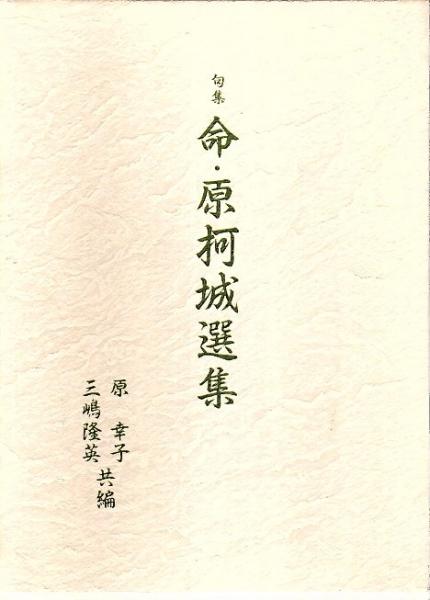 句集
命・原柯城選集
原 幸子
三嶋隆英 共編